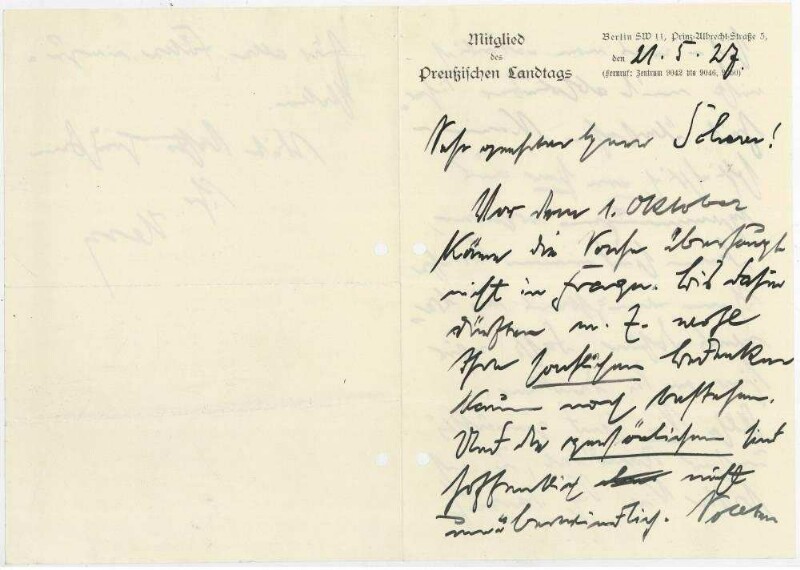 Mitglied
des
Preußischen Landtags
Berlin SW 11, Prinz-Albrecht-Straße 5,
den 21. 5. 27.
(Fernruf: Zentrum 9042 bis 9046,
Sehr geehrter Herr Scherer!
Vor dem 1. Oktober
käme die Sache überhaupt
nicht in Frage. Bis dahin
dürften m. E. wohl
Ihre sachlichen Bedenken
kaum noch bestehen.
Und die persönlichen sind
hoffentlich nicht
unüberwindlich.